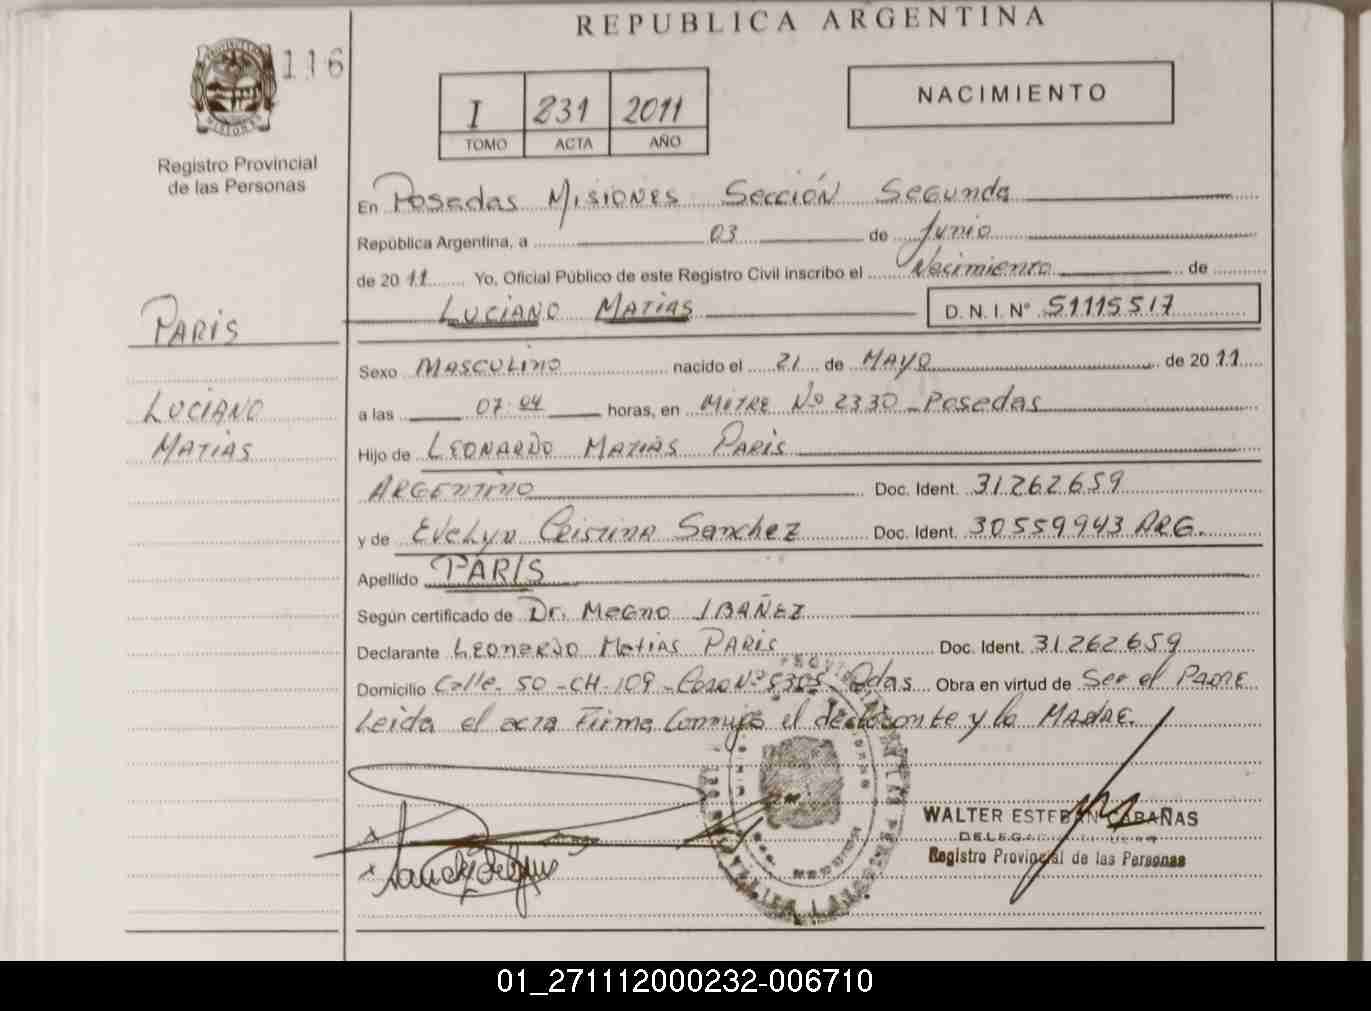 REPUBLICA ARGENTINA
116
I 231 2011
TOMO ACTA AÑO
NACIMIENTO
MISIONES
Registro Provincial
de las Personas
En Posadas Misiones Sección Segunda
República Argentina, a 03 de Junio
de 2011 Yo, Oficial Público de este Registro Civil inscribo el Nacimiento de
Luciano Matias D.N.I. Nº 51115517
PARIS
Sexo MASCULINO nacido el 21 de MAYO de 2011
LUCIANO
a las 07:04 horas, en MITRE Nº 2330 - Posadas
MATIAS
Hijo de LEONARDO MATIAS PARIS
ARGENTINO Doc. Ident. 31.262.659
y de Evelyn Cristina Sanchez Doc. Ident. 30559943 ARG.
Apellido PARIS
Según certificado de Dr. Magno IBAÑEZ
Declarante Leonardo Matias PARIS Doc. Ident. 31.262.659
Domicilio Calle 50 - CH - 109 - Casa Nº - Pdas Obra en virtud de Ser el PADRE
Leida el acta Firma Conmigo el declarante y la MADRE.
WALTER ESTEBAN CABAÑAS
Registro Provincial de las Personas
01_271112000232-006710